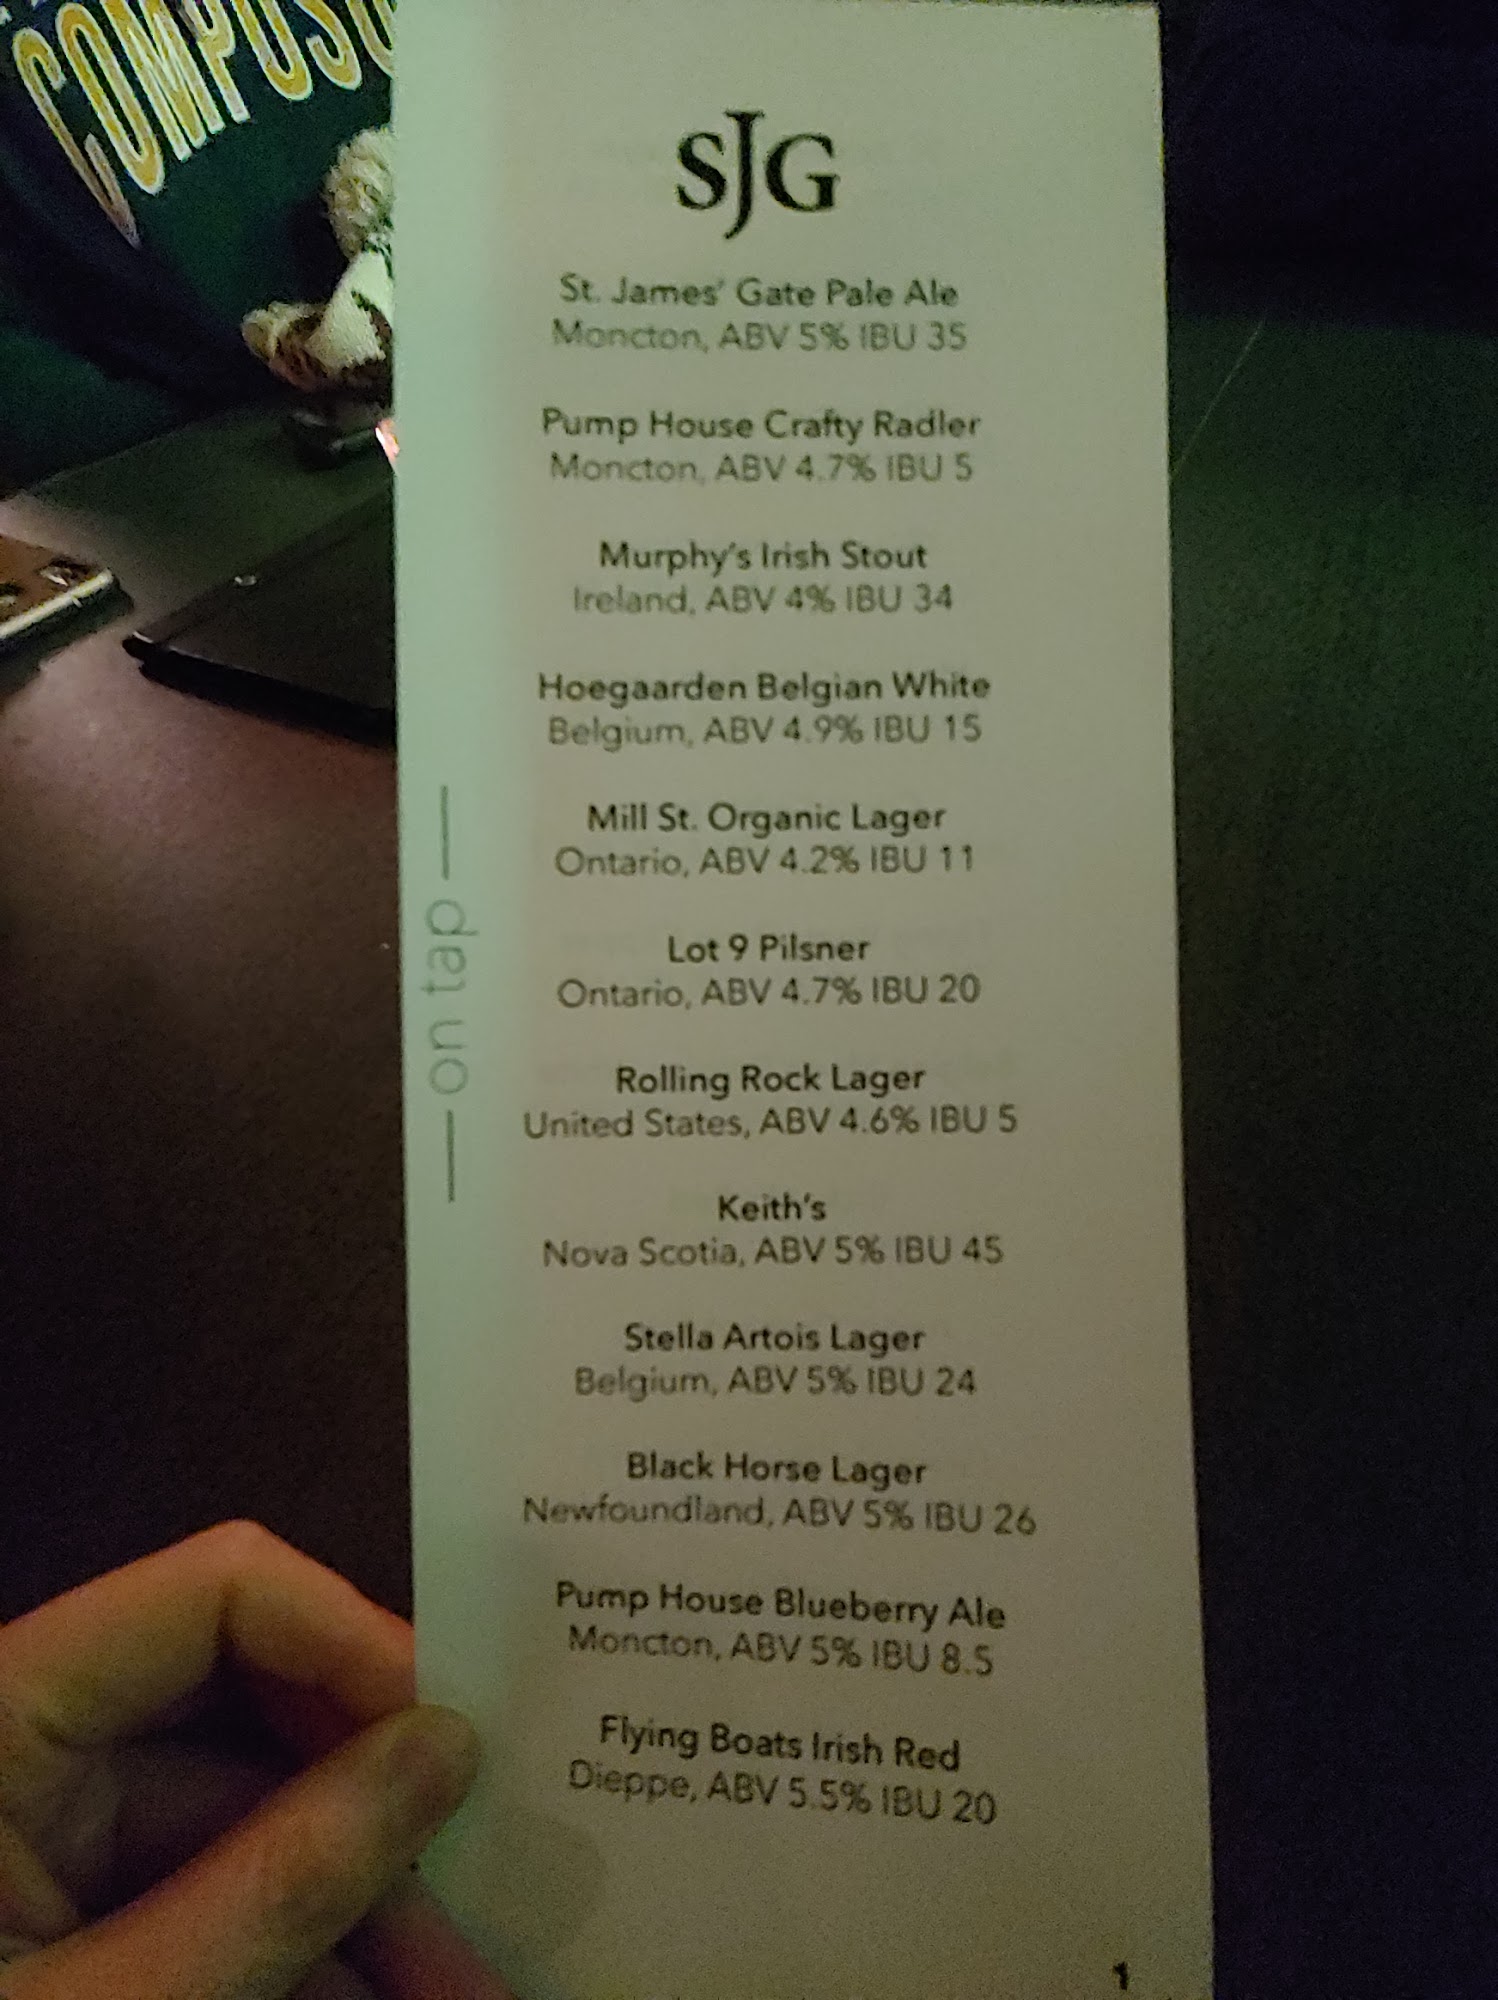 COMPOS
SJG
St. James' Gate Pale Ale
Moncton, ABV 5% IBU 35
Pump House Crafty Radler
Moncton, ABV 4.7% IBU 5
Murphy's Irish Stout
Ireland, ABV 4% IBU 34
Hoegaarden Belgian White
Belgium, ABV 4.9% IBU 15
Mill St. Organic Lager
Ontario, ABV 4.2% IBU 11
Lot 9 Pilsner
Ontario, ABV 4.7% IBU 20
Rolling Rock Lager
United States, ABV 4.6% IBU 5
Keith's
Nova Scotia, ABV 5% IBU 45
Stella Artois Lager
Belgium, ABV 5% IBU 24
Black Horse Lager
Newfoundland, ABV 5% IBU 26
Pump House Blueberry Ale
Moncton, ABV 5% IBU 8.5
Flying Boats Irish Red
Dieppe, ABV 5.5% IBU 20
on tap
1